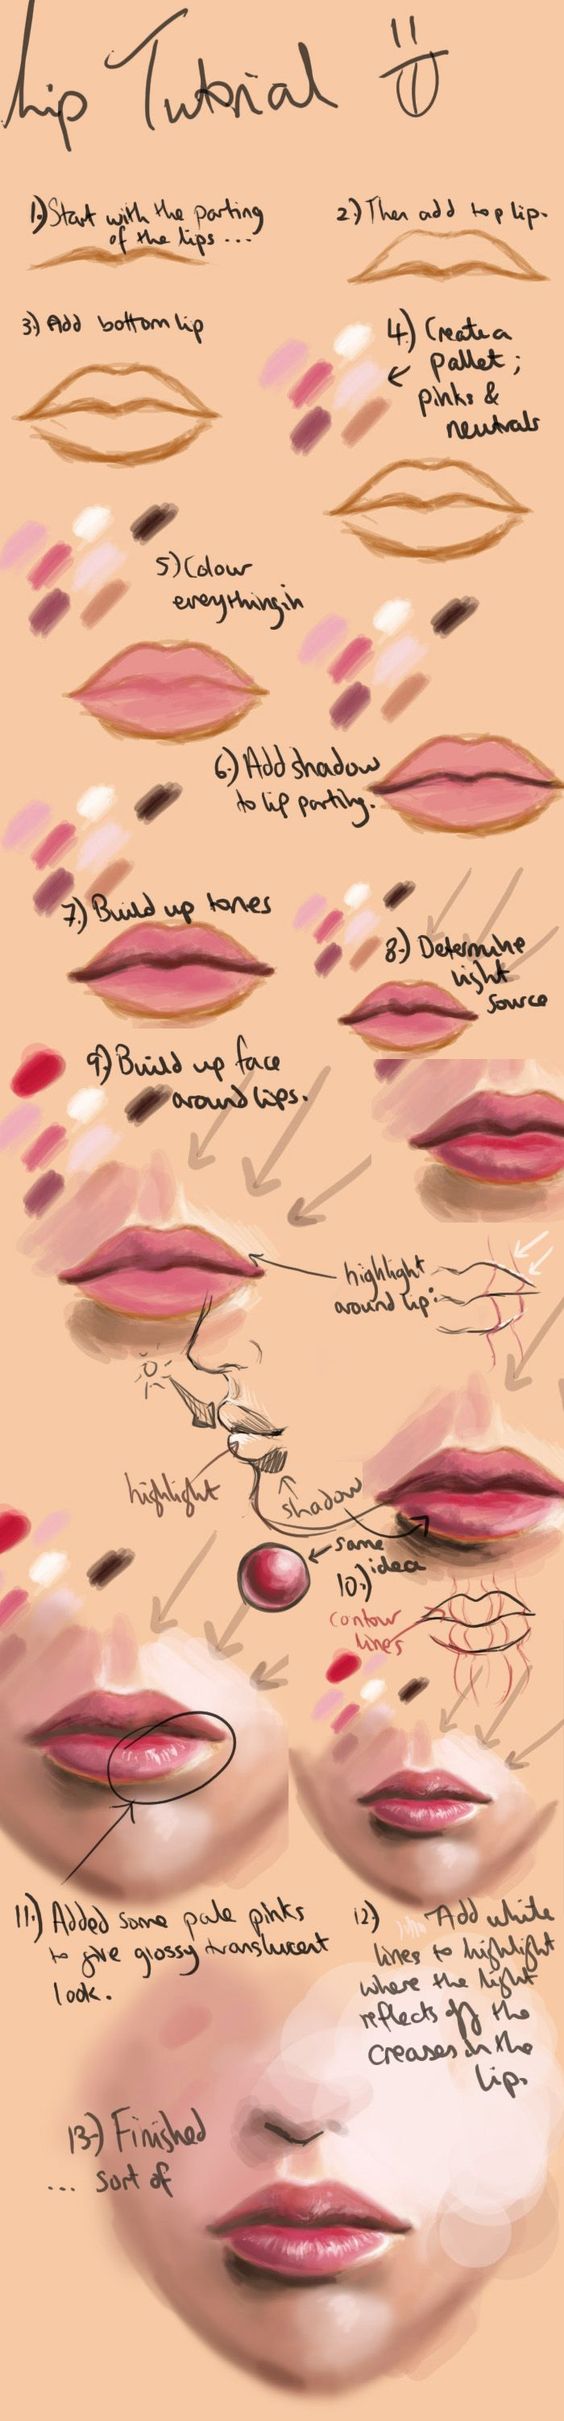 Lip Tutorial
1.) Start with the parting
of the lips...
2.) Then add top lip.
3.) Add bottom lip
4.) Create a
pallet;
pinks &
neutrals
5.) Colour
everything in
6.) Add shadow
to lip parting.
7.) Build up tones
8.) Determine
light
source
9.) Build up face
around lips.
highlight
around lip:
highlight
shadow
same
idea
10.)
contour
lines
11.) Added some pale pinks
to give glossy translucent
look.
12.) Add white
lines to highlight
where the light
reflects off the
creases in the
lip.
13.) Finished
... sort of